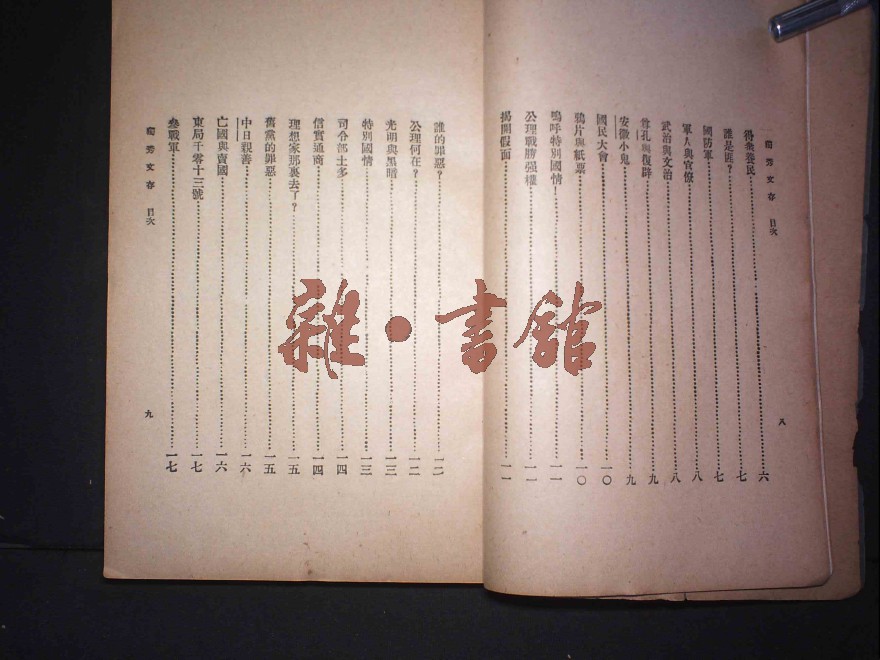 獨秀文存　目次
得衆養民……六
誰是匪？……七
國防軍……七
軍人與官僚……八
武治與文治……八
尊孔與復辟……九
安徽小鬼……九
國民大會……一〇
鴉片與紙票……一〇
嗚呼特別國情！……一一
公理戰勝强權……一一
揭開假面……一一
八
誰的罪惡？……一二
公理何在？……一二
光明與黑暗……一三
特別國情……一三
司令部土多……一四
信實通商……一四
理想家那裏去了？……一五
舊黨的罪惡……一五
中日親善……一六
亡國與賣國……一六
東局千零十三號……一七
參戰軍……一七
獨秀文存　目次
九
雜·書館